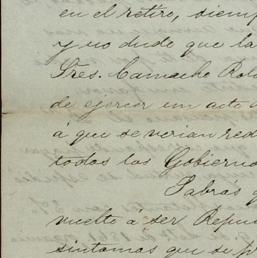 en el retiro, siemp
y no dude que la
Tres. Camacho Rol
de ejercer un acto d
á que se verian red
todos los Gobierno
Sabrás q
vuelto á ser Repu
síntomas que se p